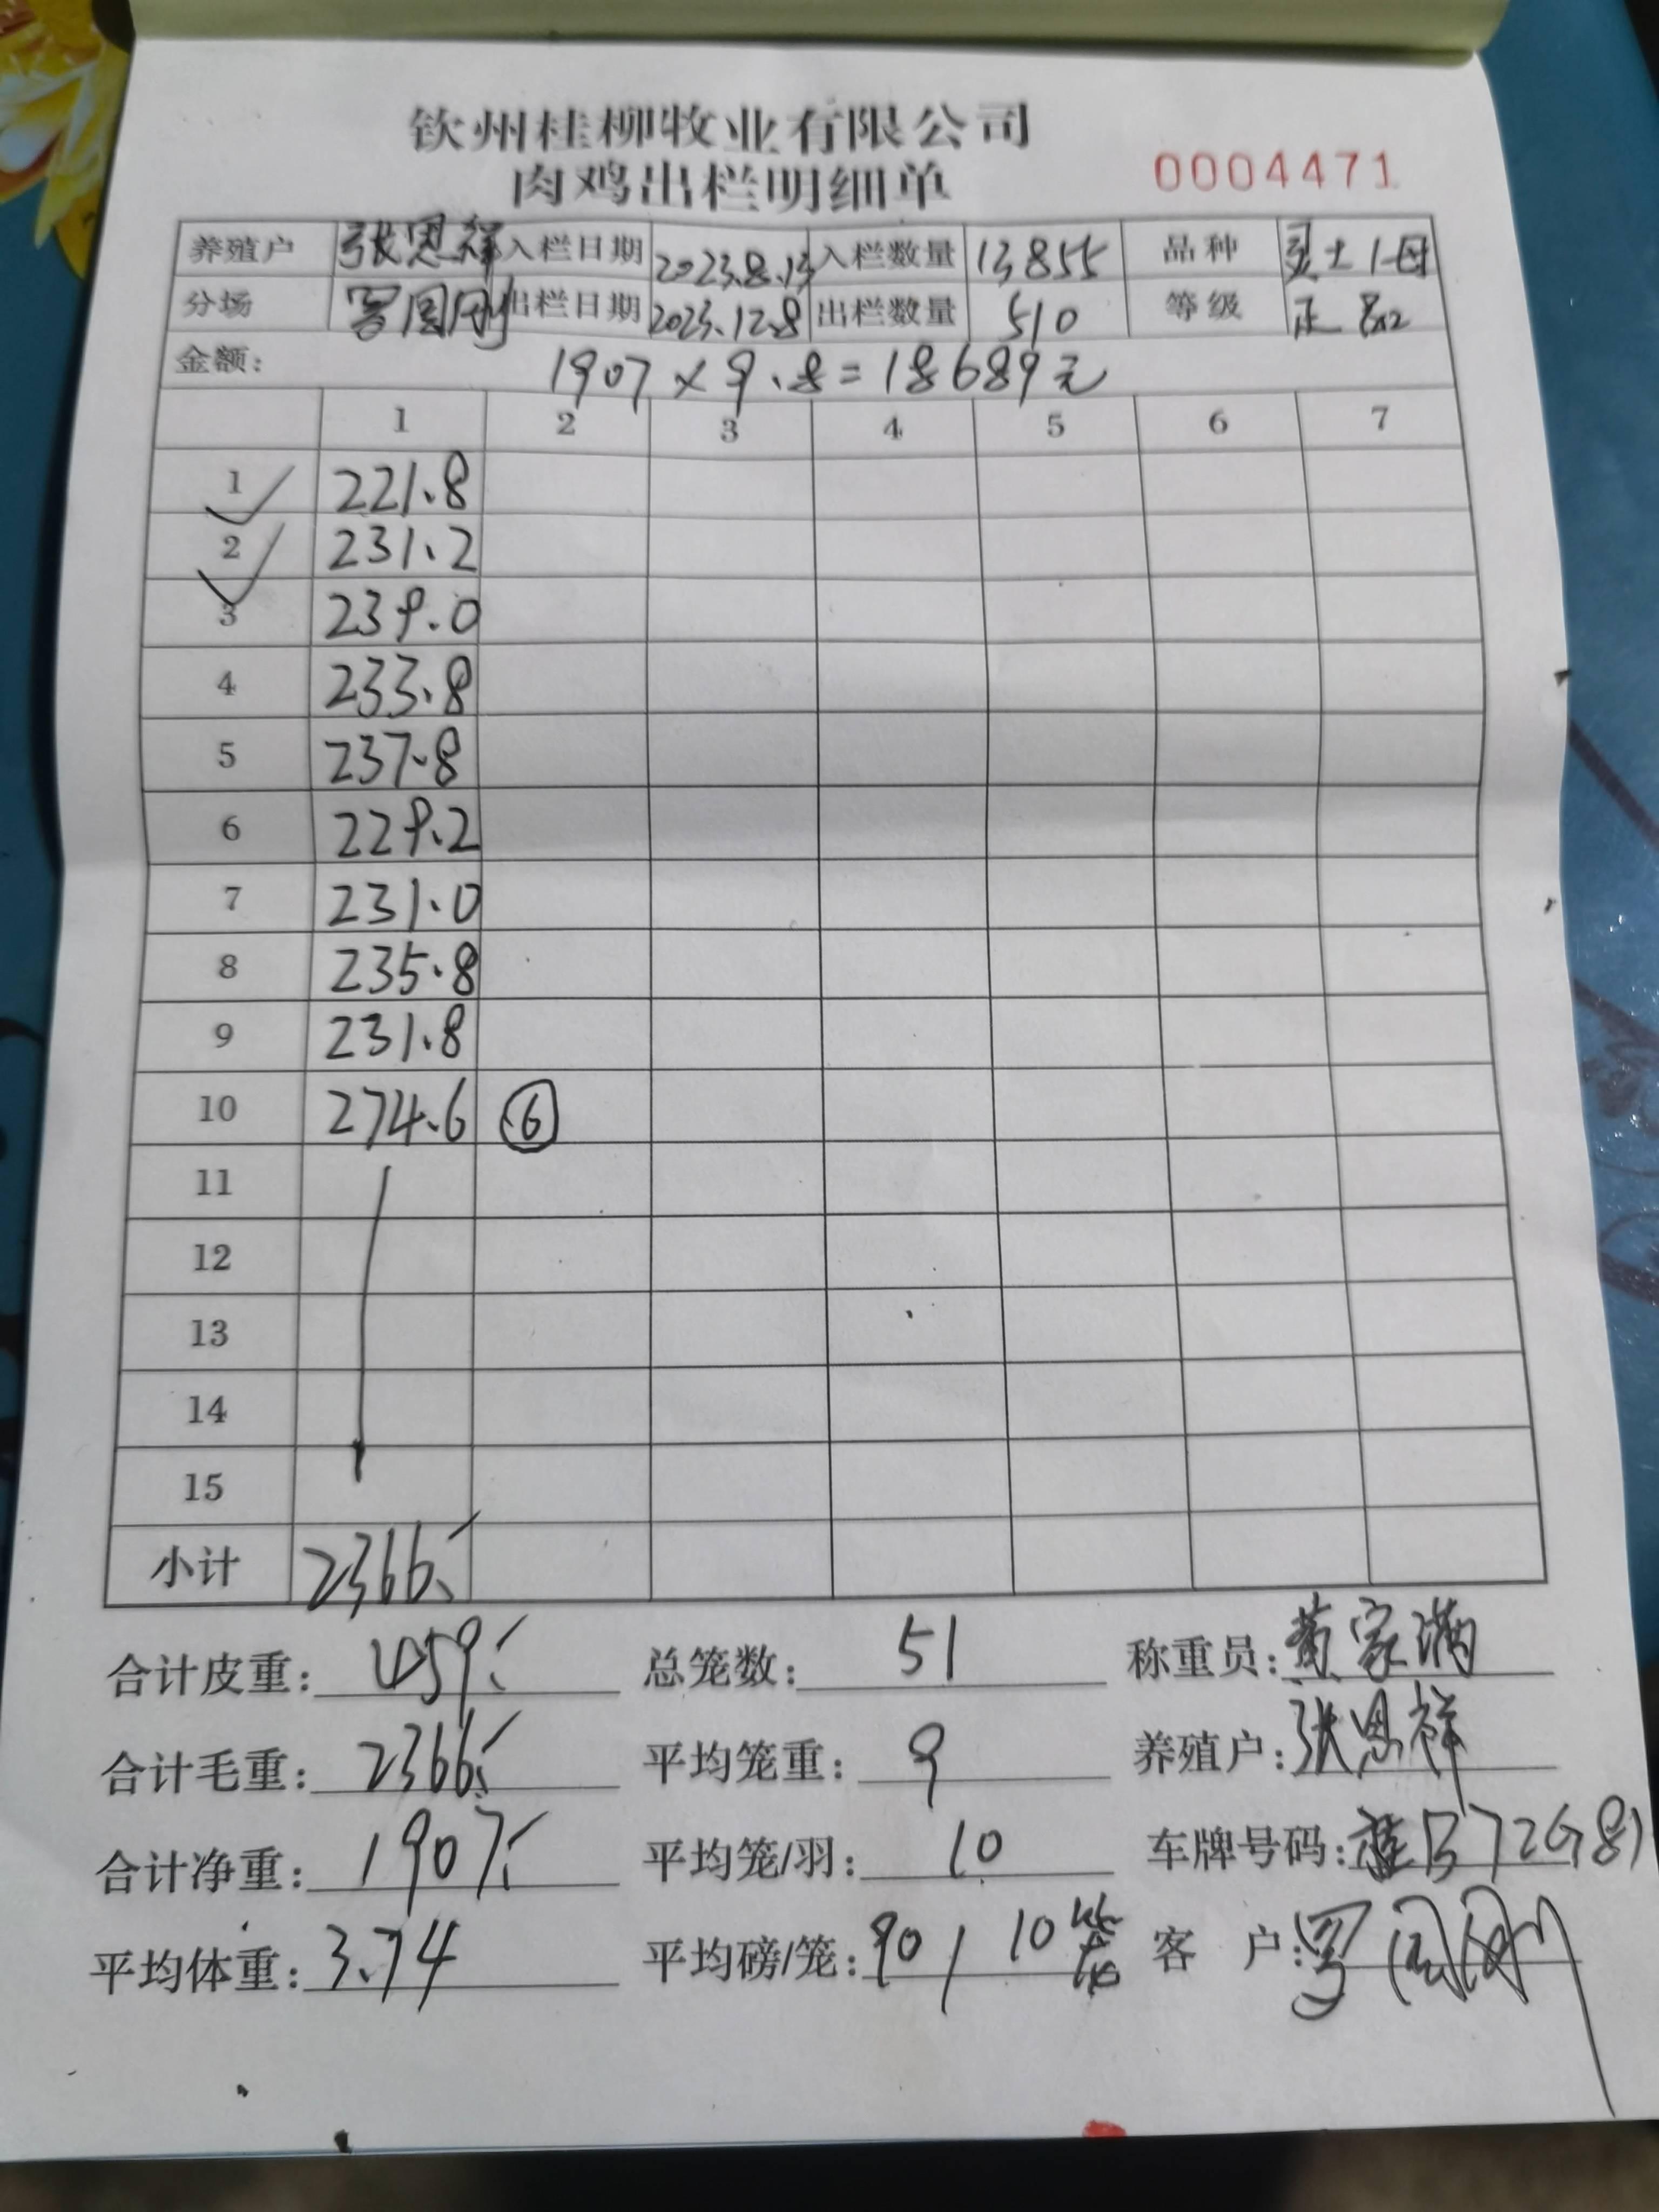 钦州桂柳牧业有限公司
肉鸡出栏明细单 0004471
养殖户 张恩祥 入栏日期 2023.8.13 入栏数量 13855 品种 土1母
分场 罗国刚 出栏日期 2023.12.8 出栏数量 510 等级 正
金额: 1907×9.8=18689元
1 2 3 4 5 6 7
1 221.8
2 231.2
3 239.0
4 233.8
5 237.8
6 229.2
7 231.0
8 235.8
9 231.8
10 274.6 6
11
12
13
14
15
小计 2366
合计皮重: 459 总笼数: 51 称重员: 黄家满
合计毛重: 2366 平均笼重: 9 养殖户: 张恩祥
合计净重: 1907 平均笼/羽: 10 车牌号码: 桂B72G81
平均体重: 3.74 平均磅/笼: 90/10笼 客 户: 罗国刚